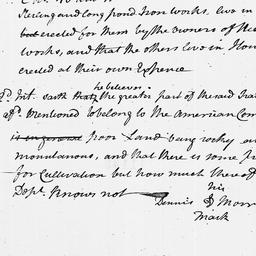 Sterling and Long pond Iron works, live in
but erected for them by the owners of the
works, and that the others live in
erected at their own Expence
he believes
Int. saith that the greater part of the said
aff.d mentioned to belong to the American Com
is in general poor Land being rocky
mountanous, and that there is some
for Cultivation but how much thereof
Dep.t Knows not
his
Dennis D Morr
mark